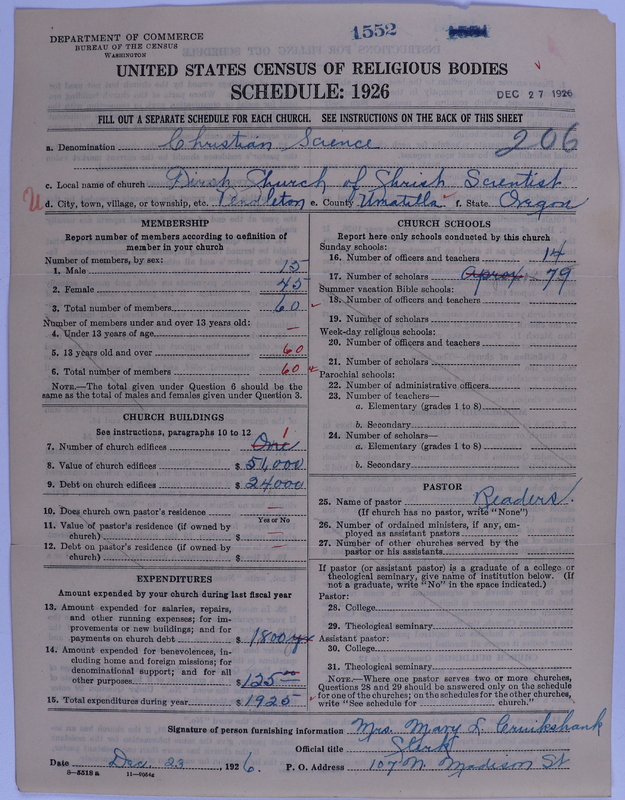 DEPARTMENT OF COMMERCE
BUREAU OF THE CENSUS
WASHINGTON
1552
UNITED STATES CENSUS OF RELIGIOUS BODIES
SCHEDULE: 1926
DEC 27 1926
FILL OUT A SEPARATE SCHEDULE FOR EACH CHURCH. SEE INSTRUCTIONS ON THE BACK OF THIS SHEET
a. Denomination Christian Science 206
c. Local name of church First Church of Christ Scientist
d. City, town, village, or township, etc. Pendleton e. County Umatilla f. State Oregon
MEMBERSHIP
Report number of members according to definition of
member in your church
Number of members, by sex:
1. Male 15
2. Female 45
3. Total number of members 60
Number of members under and over 13 years old:
4. Under 13 years of age —
5. 13 years old and over 60
6. Total number of members 60
NOTE.—The total given under Question 6 should be the
same as the total of males and females given under Question 3.
CHURCH BUILDINGS
See instructions, paragraphs 10 to 12
7. Number of church edifices One 1
8. Value of church edifices $ 51,000
9. Debt on church edifices $ 24000
10. Does church own pastor's residence —
Yes or No
11. Value of pastor's residence (if owned by
church) $ —
12. Debt on pastor's residence (if owned by
church) $ —
EXPENDITURES
Amount expended by your church during last fiscal year
13. Amount expended for salaries, repairs,
and other running expenses; for im-
provements or new buildings; and for
payments on church debt $ 1800
14. Amount expended for benevolences, in-
cluding home and foreign missions; for
denominational support; and for all
other purposes $ 125.00
15. Total expenditures during year $ 1925
CHURCH SCHOOLS
Report here only schools conducted by this church
Sunday schools:
16. Number of officers and teachers 14
17. Number of scholars Aprox 79
Summer vacation Bible schools:
18. Number of officers and teachers
19. Number of scholars
Week-day religious schools:
20. Number of officers and teachers
21. Number of scholars
Parochial schools:
22. Number of administrative officers
23. Number of teachers—
a. Elementary (grades 1 to 8)
b. Secondary
24. Number of scholars—
a. Elementary (grades 1 to 8)
b. Secondary
PASTOR
25. Name of pastor Readers.
(If church has no pastor, write "None")
26. Number of ordained ministers, if any, em-
ployed as assistant pastors
27. Number of other churches served by the
pastor or his assistants
If pastor (or assistant pastor) is a graduate of a college or
theological seminary, give name of institution below. (If
not a graduate, write "No" in the space indicated.)
Pastor:
28. College
29. Theological seminary
Assistant pastor:
30. College
31. Theological seminary
NOTE.—Where one pastor serves two or more churches,
Questions 28 and 29 should be answered only on the schedule
for one of the churches; on the schedules for the other churches,
write "See schedule for church."
Signature of person furnishing information Mrs. Mary L. Cruikshank
Official title Clerk
Date Dec. 23, 1926. P. O. Address 107 N. Madison St
8—5518 a